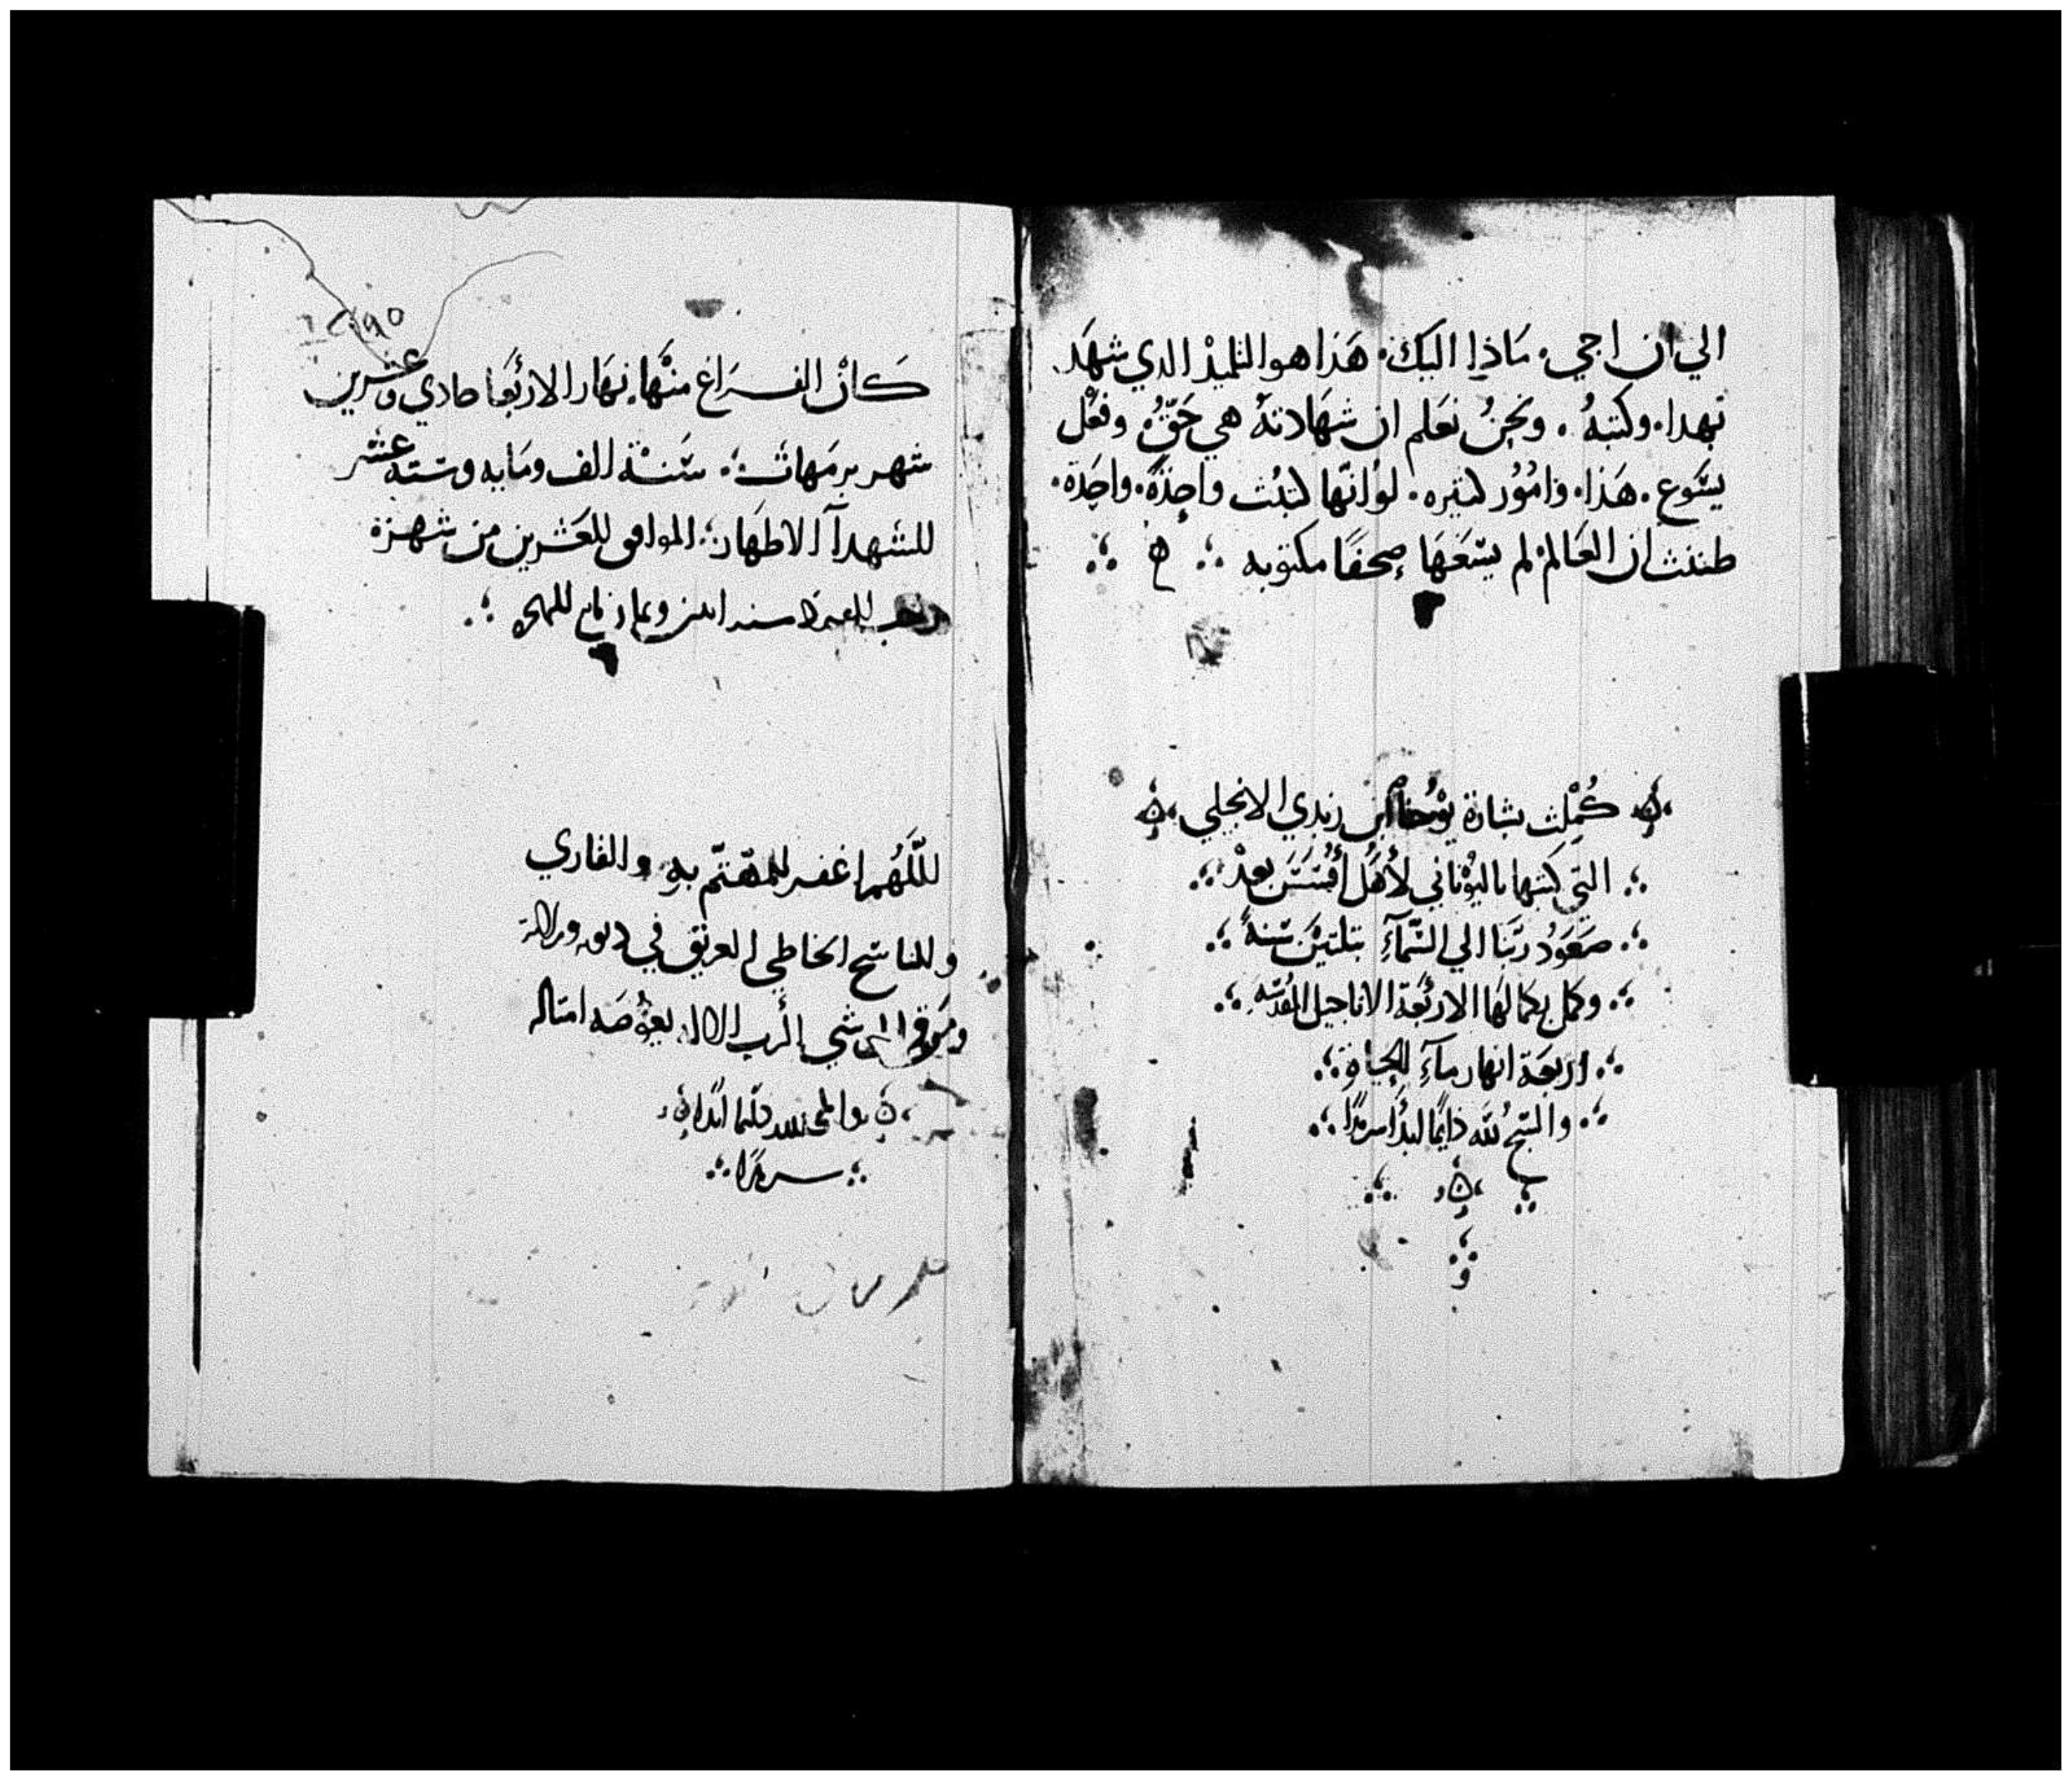 الي ان اجي. ماذا اليك. هَذا هو التلميذ الدي شهَد
بهدا. وكتبهُ. ونحنُ نعَلم ان شهَادتهُ هي حَقّهُ وفعَل
يسَوع. هَذا. وامُوُر كتيره. لو انّها كتبُت واحِدَةً. واحِدَة.
ظننت ان العَالم لم يسَعَهَا صِحفًا مكتوبه
كُمِلت بشارة يوُحنا ابن زبدي الانجيلي
التي كتبها باليوُناني لأهَل أفسَسَ بعدْ
صَعَوُد ربّنا الي السَّمآءِ بتلتيَن سَنهً
وكمل بكمالهَا الاربعَة الاناجيل المقُدسّه
اربعَة انهار مآءِ الحياة
والسَّبحُ للّه دايمًا ابدًا سرمدًا
١٢٩٥
كانَ الفراغ منهَا نهَار الاربَعَا حادي وعشرين
شهر برمَهات سَنة الف ومَايه وستة عشر
للشهدآ الاطهَار الموافق للعَشرين من شهر
القعدة سنه
اللّهُم اغفر للمهتّم بهِ والقاري
وللناسَخ الخاطي الغريق في
شي الرب يعوُضَه امتاله
دايمًا ابدًا
سرمدًا